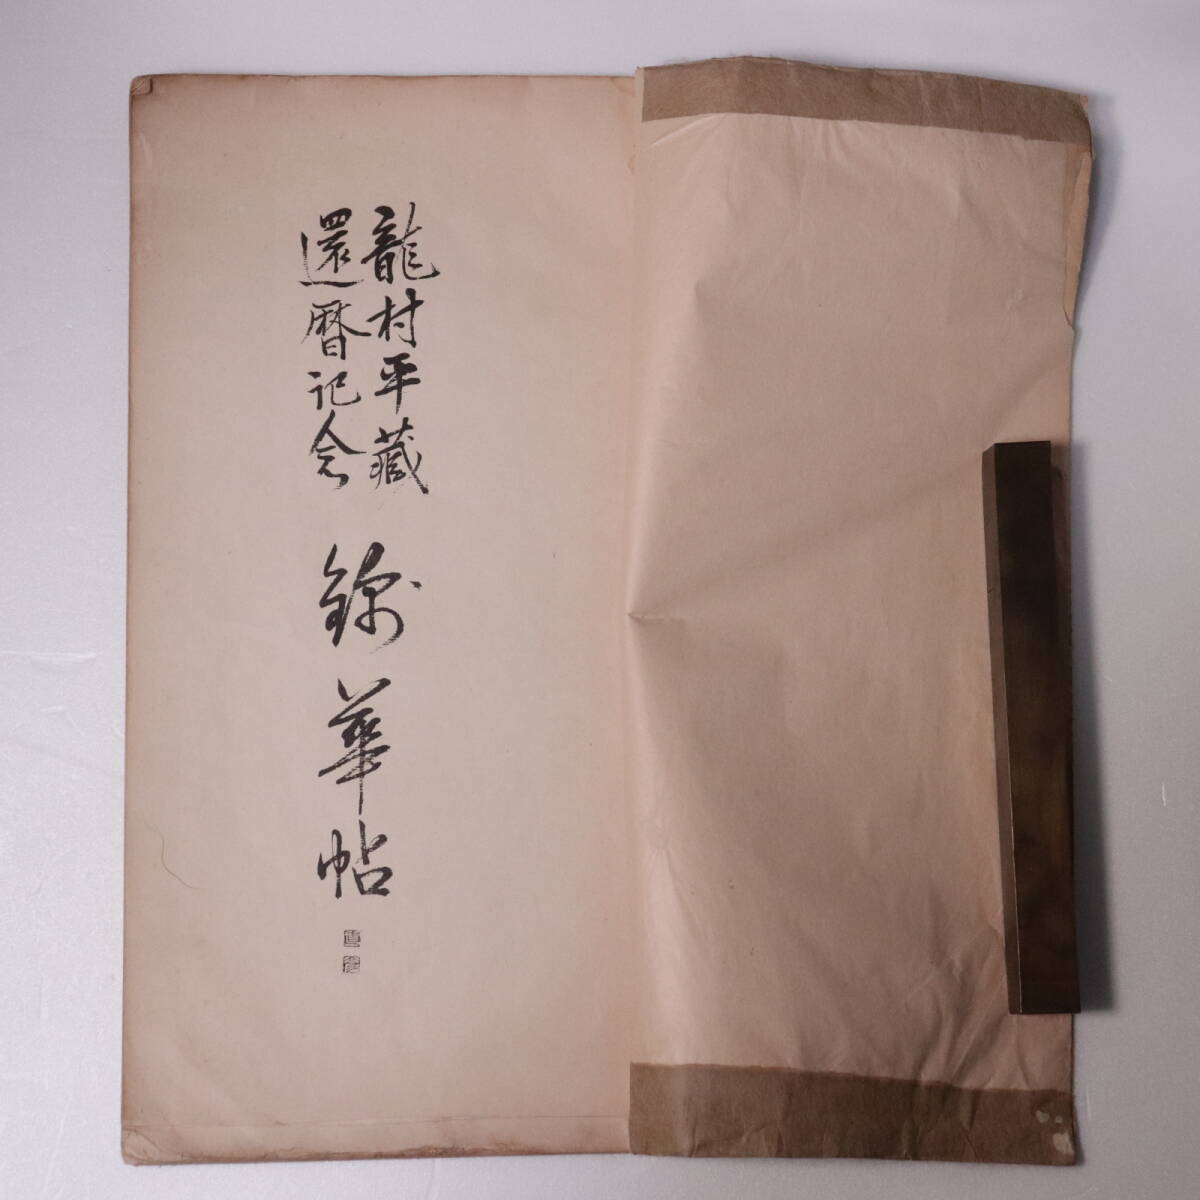 龍村平藏
還暦記念
錦華帖